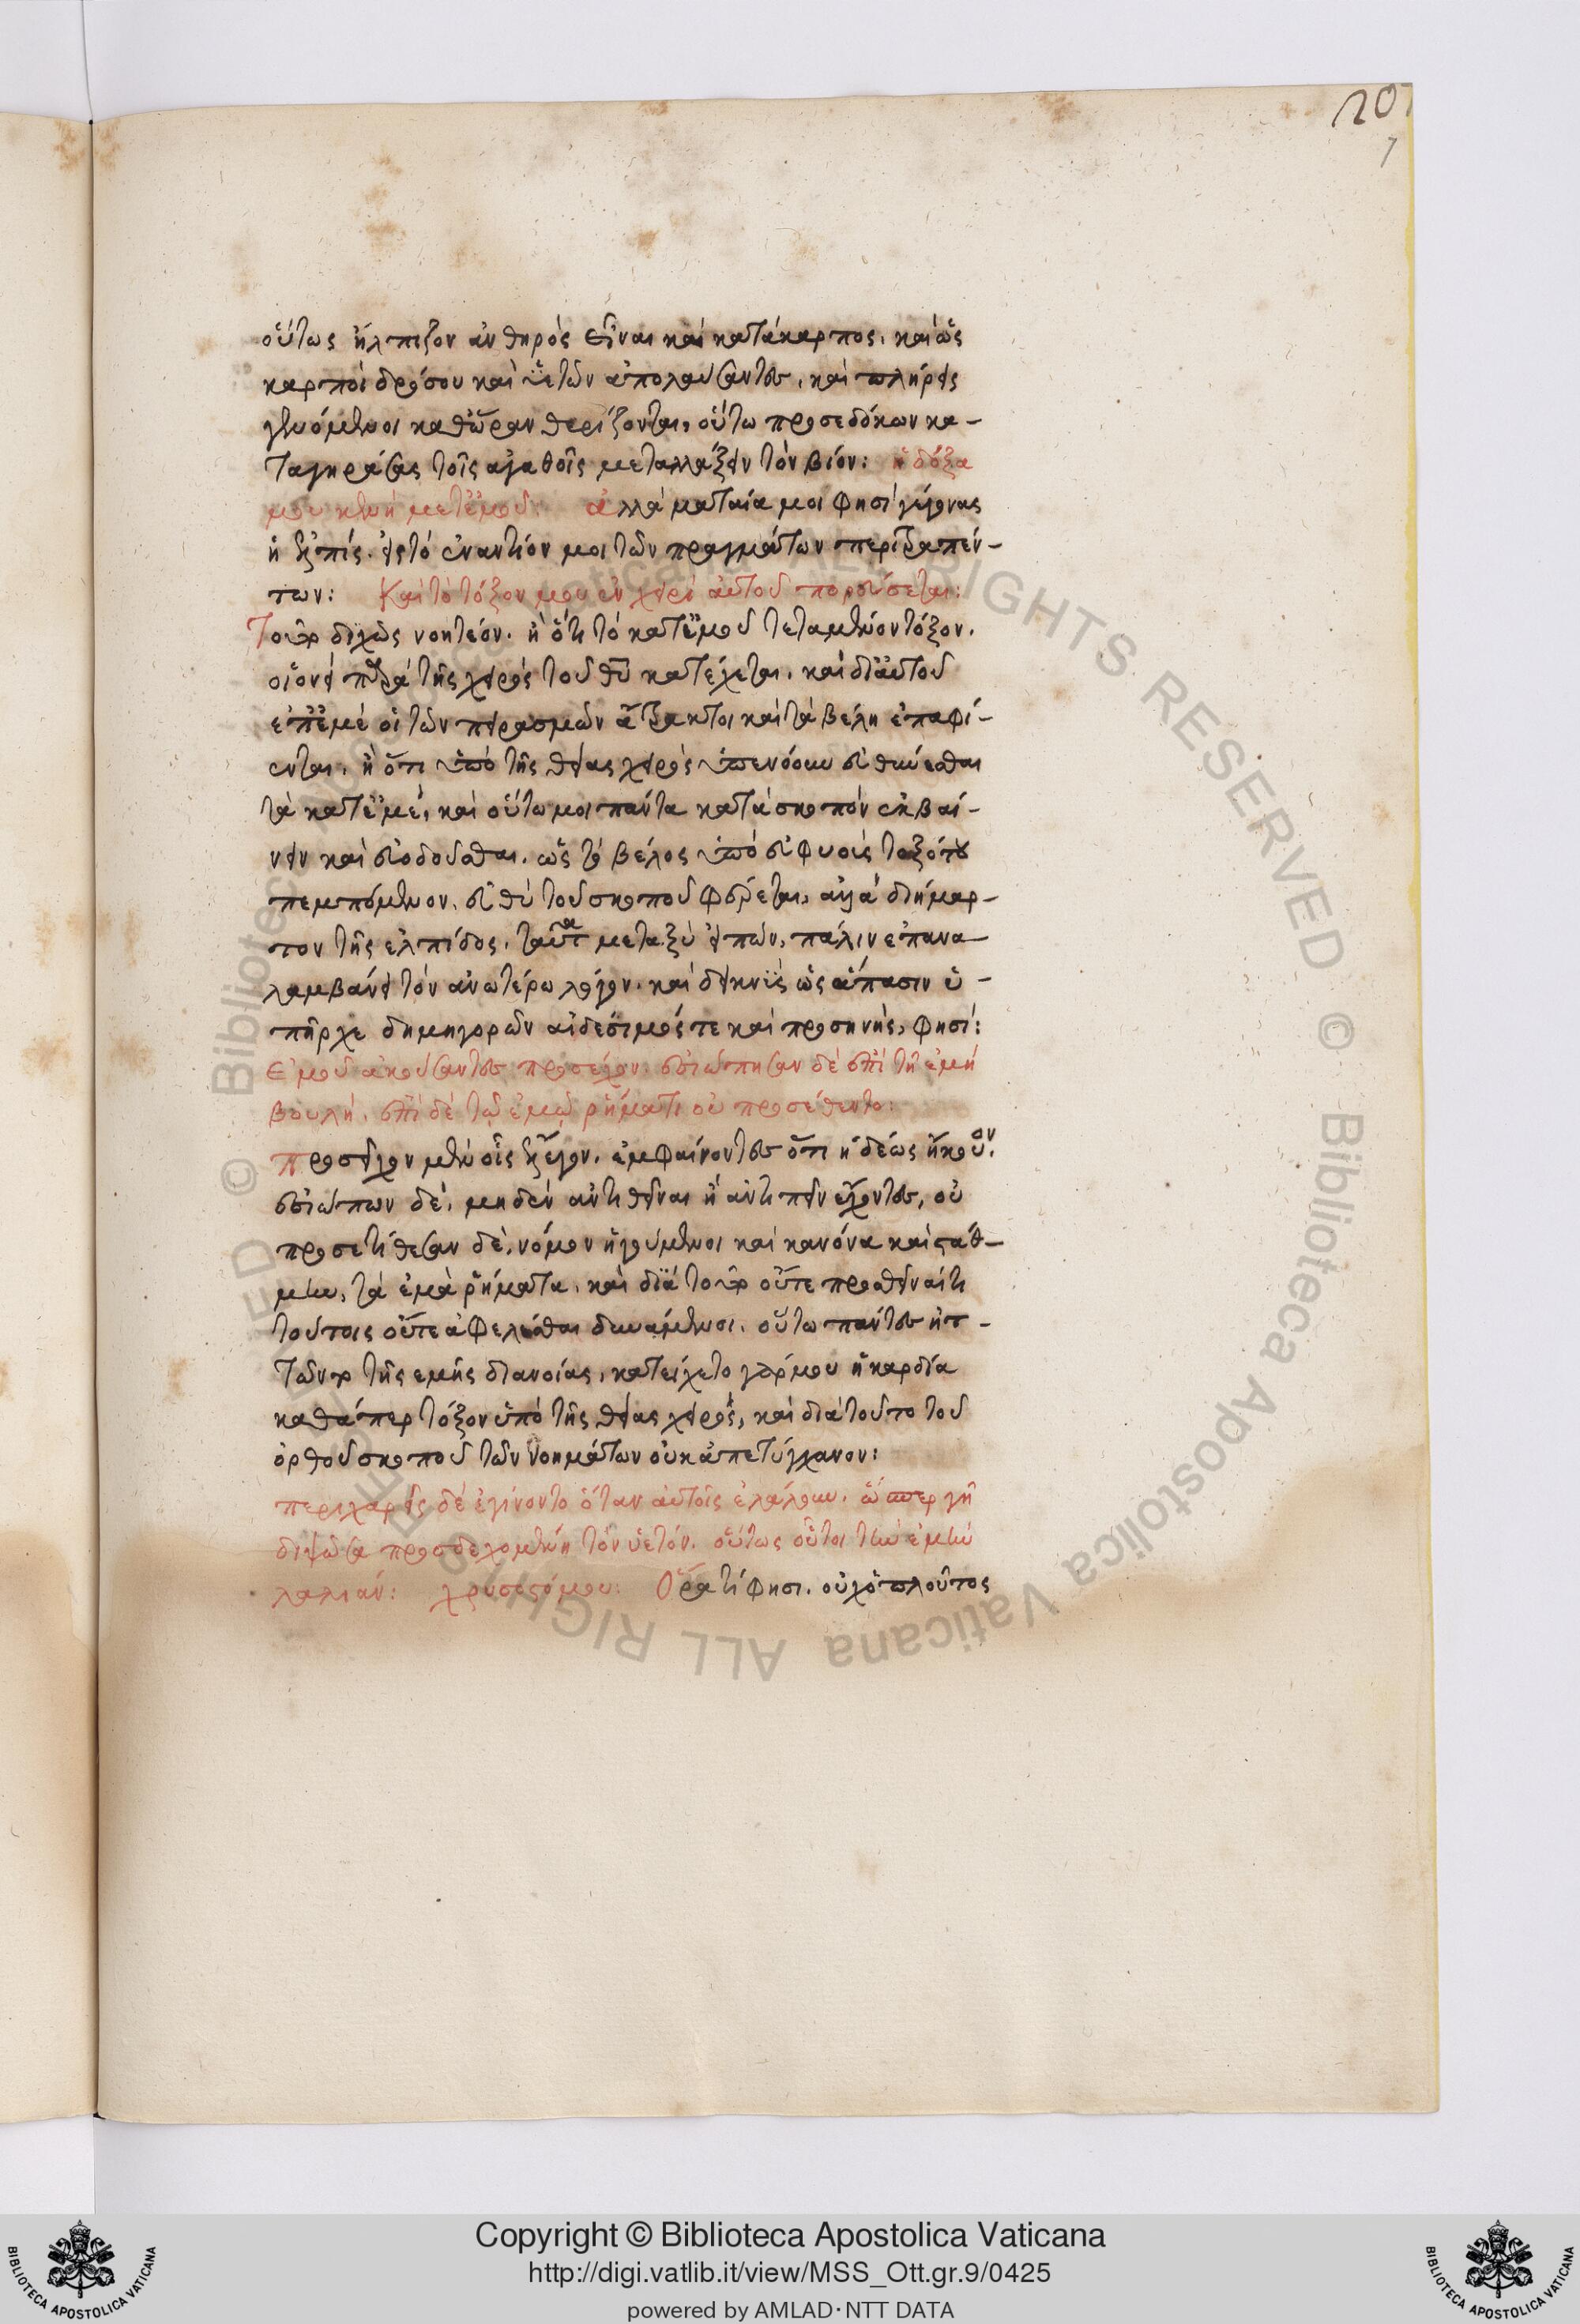 201
οὕτως ἤλπιζον ἀνθηρὸς εἶναι καὶ κατάκαρπος. καὶ ὡς
καρποὶ δρόσου καὶ ὑετῶν ἀπολαύσαντες, καὶ πλήρεις
γενόμενοι καθ' ὥραν θερίζονται, οὕτω προσεδόκων κα-
ταγηράσας τοῖς ἀγαθοῖς μεταλλάξειν τὸν βίον: ἡ δόξα
μου κενὴ μετ' ἐμοῦ: ἀλλὰ ματαία μοι φησὶ γέγονας
ἡ ἐλπίς. εἰς τὸ ἐναντίον μοι τῶν πραγμάτων περιτραπέν-
των: Καὶ τὸ τόξον μου ἐν χειρὶ αὐτοῦ πορεύσεται:
Τοῦτο διχῶς νοητέον. ἢ ὅτι τὸ κατ' ἐμοῦ τεταμένον τόξον.
οἱονεὶ παρὰ τῆς χειρὸς τοῦ θυ κατέχεται. καὶ δι' αὐτοῦ
ἐπ' ἐμὲ οἱ τῶν πειρασμῶν ἄτρακτοι καὶ τὰ βέλη ἐπαφί-
ενται. ἢ ὅτι ὑπὸ τῆς θείας χειρὸς ὑπενόουν εὐθύνεσθαι
τὰ κατ' ἐμέ, καὶ οὕτω μοι πάντα κατὰ σκοπὸν ἐκβαί-
νειν καὶ εὐοδοῦσθαι. ὡς τὸ βέλος ὑπὸ εὐφυοῦς τοξότου
πεμπόμενον. εὐθὺ τοῦ σκοποῦ φέρεται, ἀλλὰ διήμαρ-
τον τῆς ἐλπίδος. ταῦτα μεταξὺ εἰπών, πάλιν ἐπανα-
λαμβάνει τὸν ἀνωτέρω λόγον. καὶ δεικνὺς ὡς ἅπασιν ὑ-
πῆρχε δημηγορῶν αἰδέσιμός τε καὶ προσηνής, φησί:
Ἐμοῦ ἀκούσαντες προσέσχον. ἐσιώπησαν δὲ ἐπὶ τῇ ἐμῇ
βουλῇ. ἐπὶ δὲ τῷ ἐμῷ ῥήματι οὐ προσέθεντο:
προσεῖχον μὲν οἷς ἔλεγον. ἐμφαίνοντες ὅτι ἡδέως ἤκουον.
ἐσιώπων δέ, μηδὲν ἀντιθεῖναι ἢ ἀντιπεῖν ἔχοντες, οὐ
προσετίθεσαν δέ, νόμον ἡγούμενοι καὶ κανόνα καὶ στάθ-
μην, τὰ ἐμὰ ῥήματα. καὶ διὰ τοῦτο οὔτε προσθεῖναί τι
τούτοις οὔτε ἀφελέσθαι δυνάμενοι. οὕτω πάντες ἡτ-
τῶντο τῆς ἐμῆς διανοίας, κατείχετο γάρ μου ἡ καρδία
καθάπερ τόξον ὑπὸ τῆς θείας χειρός, καὶ διὰ τοῦτο τοῦ
ὀρθοῦ σκοποῦ τῶν νοημάτων οὐκ ἀπετύγχανον:
περιχαρεῖς δὲ ἐγίνοντο ὅταν αὐτοῖς ἐλάλουν. ὥσπερ γῆ
διψῶσα προσδεχομένη τὸν ὑετόν. οὕτως οὗτοι τὴν ἐμὴν
λαλιάν: χρυσοστόμου: Ὅρα τί φησι. οὐχ ὁ πλοῦτος
Copyright © Biblioteca Apostolica Vaticana
http://digi.vatlib.it/view/MSS_Ott.gr.9/0425
powered by AMLAD·NTT DATA